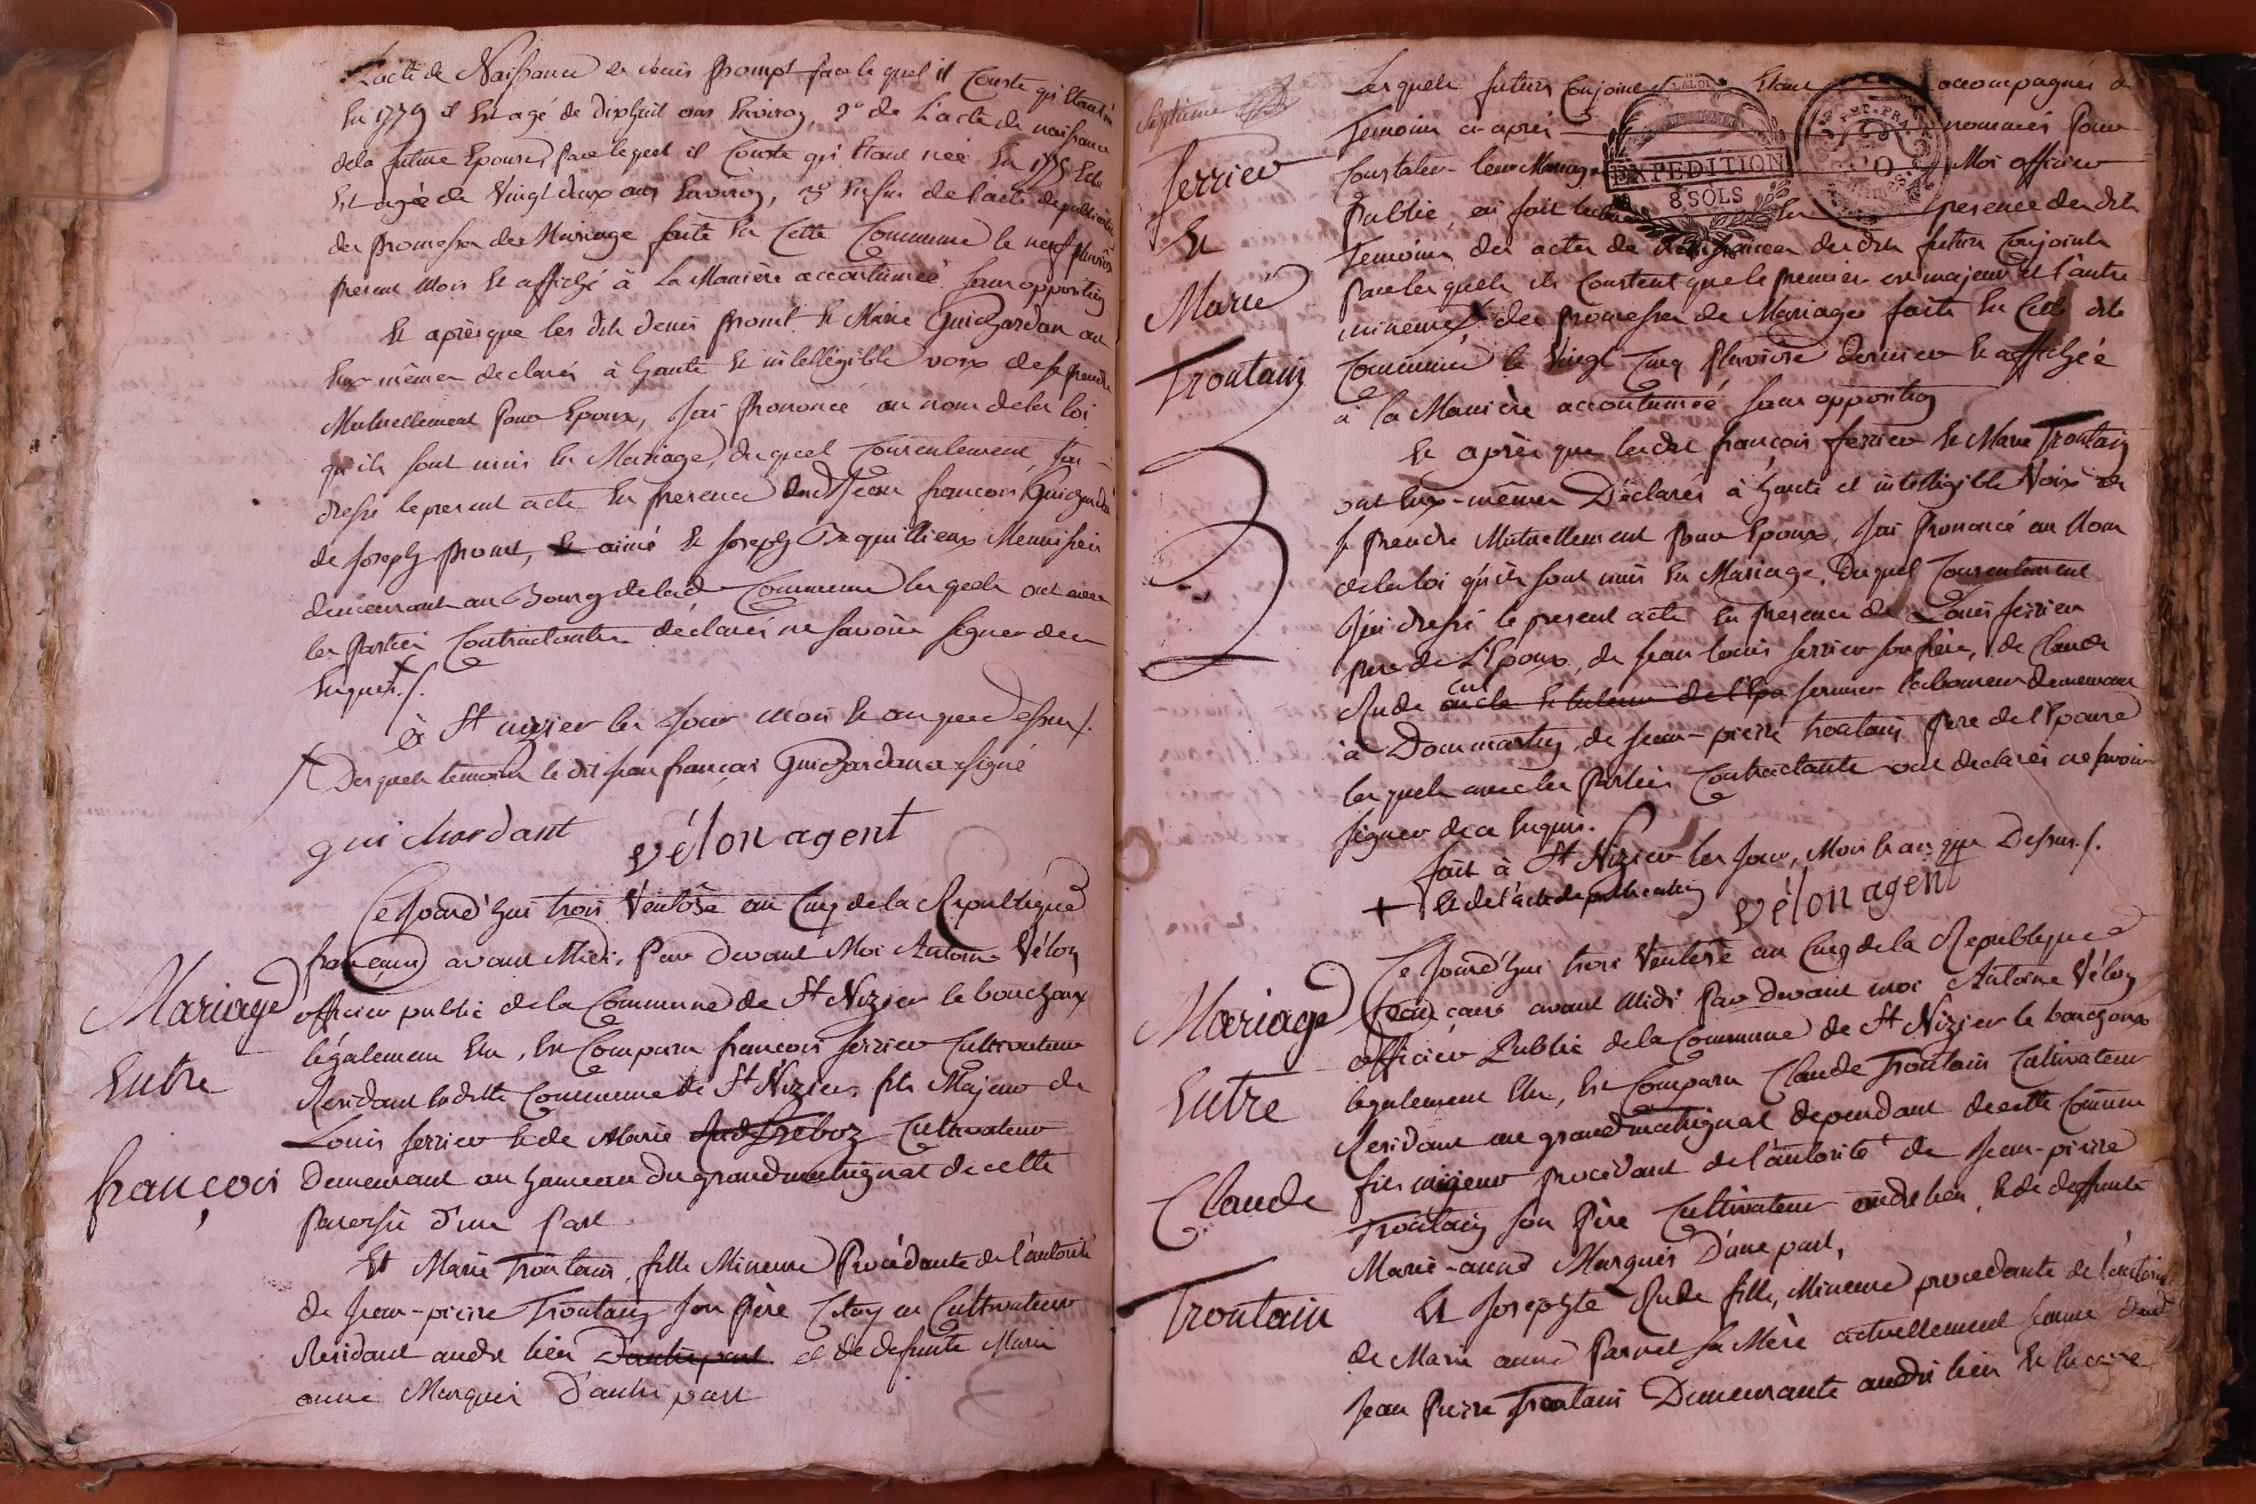 L'acte de Naissance de denis Prompt par lequel il Conste qu'Etant né
En 1779 il Est agé de dixhuit ans Environ, 2° de L'acte de naissance
de la future Epouse, par lequel il Conste qu'Etant née En 1775 Elle
Est agée de Vingt deux ans Environ, 3° Enfin de l'acte de publication
des promesses de Mariage faite En Cette Commune le neuf pluviôse
present Mois Et affiché à La Manière accoutumée sans opposition
Et après que les dits denis Promt Et Marie Guichardan ont
Eux-mêmes declarés à haute Et intelligible voix de se prendre
Mutuellement Pour Epoux, J'ai Prononcé au nom de la loi
qu'ils sont unis En Mariage, duquel Consentement J'ai
dressé le present acte En presence de Jean francois Guichardan
de Joseph Promt, aimé Et Joseph Menuisier
demeurant au Bourg de lad. Commune lesquels ont avec
les Parties Contractantes déclarés ne savoir signer de ce
Enquis ./.
à St nizier les Jour mois Et an que dessus ./.
Desquels temoins le dit jean françois Guichardan a signé
gui chardant vélon agent
Ce Jourd'hui trois Ventôse an Cinq de la Republique
francaise avant Midi, Par devant Moi Antoine Vélon
Mariage
officier public de la Commune de St Nizier le bouchoux
légalement Elu, Est Comparu francois ferrier Cultivateur
Entre
Residant ladite Commune de St Nizier, fils Majeur de
Louis ferrier Et de Marie Cultivateur
françois
Demeurant au hameau du grand matrignat de cette
Paroisse d'une Part
Et Marie Troutain, fille Mineure Procédante de l'autorité
de Jean-pierre Troutain son Père Citoyen Cultivateur
Residant audt lieu D'autre part et de defunte Marie
anne Marquis D'autre part
Septieme
Lesquels futurs Conjoints Etant accompagnés de
Temoins ci-après nommés Pour
ferrier
Constater leur Mariage Moi officier
EXPÉDITION
8 SOLS
Et
Public, ai fait lecture En presence des dits
Temoins des actes de Naissances des dits futurs Conjoints
Marie
par lesquels ils Constent que le premier est majeur et l'autre
mineure, des promesses de Mariage faite En Cette dite
Troutain
Commune le Vingt Cinq Pluviôse dernier Et affichée
à la Manière accoutumée sans opposition
Et après que lesdits françois ferrier Et Marie Troutain
ont Eux-mêmes Déclarés à haute et intelligible Voix de
se prendre Mutuellement Pour Epoux, J'ai Prononcé au Nom
de la loi qu'ils sont unis En Mariage, Duquel Consentement
J'ai dressé le present acte En presence de Louis ferrier
pere de L'Epoux, de Jean louis ferrier son frère, de Claude
Rude oncle Et tuteur de l'Epo fermier laboureur demeurant
à Dommartin, de Jean-pierre troutain Pere de l'Epouse
lesquels avec les Parties Contractante ont declarés ne savoir
signer de ce Enquis.
fait à St Nizier les Jour, Mois Et an que Dessus ./.
+ Et de l'acte de publication vélon agent
Ce Jourd'hui trois Ventose an Cinq de la Republique
Mariage
francaise avant Midi Par devant moi Antoine Vélon
officier Public de la Commune de St Nizier le bouchoux
Entre
legalement Elu, Est Comparu Claude Troutain Cultivateur
Residant au grand matrignat dependant de cette Commune
Claude
fils mineur procédant de l'autorité de Jean-pierre
Troutain son Père Cultivateur audt lieu, Et de deffunte
Marie-anne Marquis D'une part,
Troutain
Et Josephte Rude fille, Mineure procedante de l'autorité
de Marie anne Parvet sa Mère actuellement femme dud
Jean Pierre Troutain Demeurante audit lieu Et